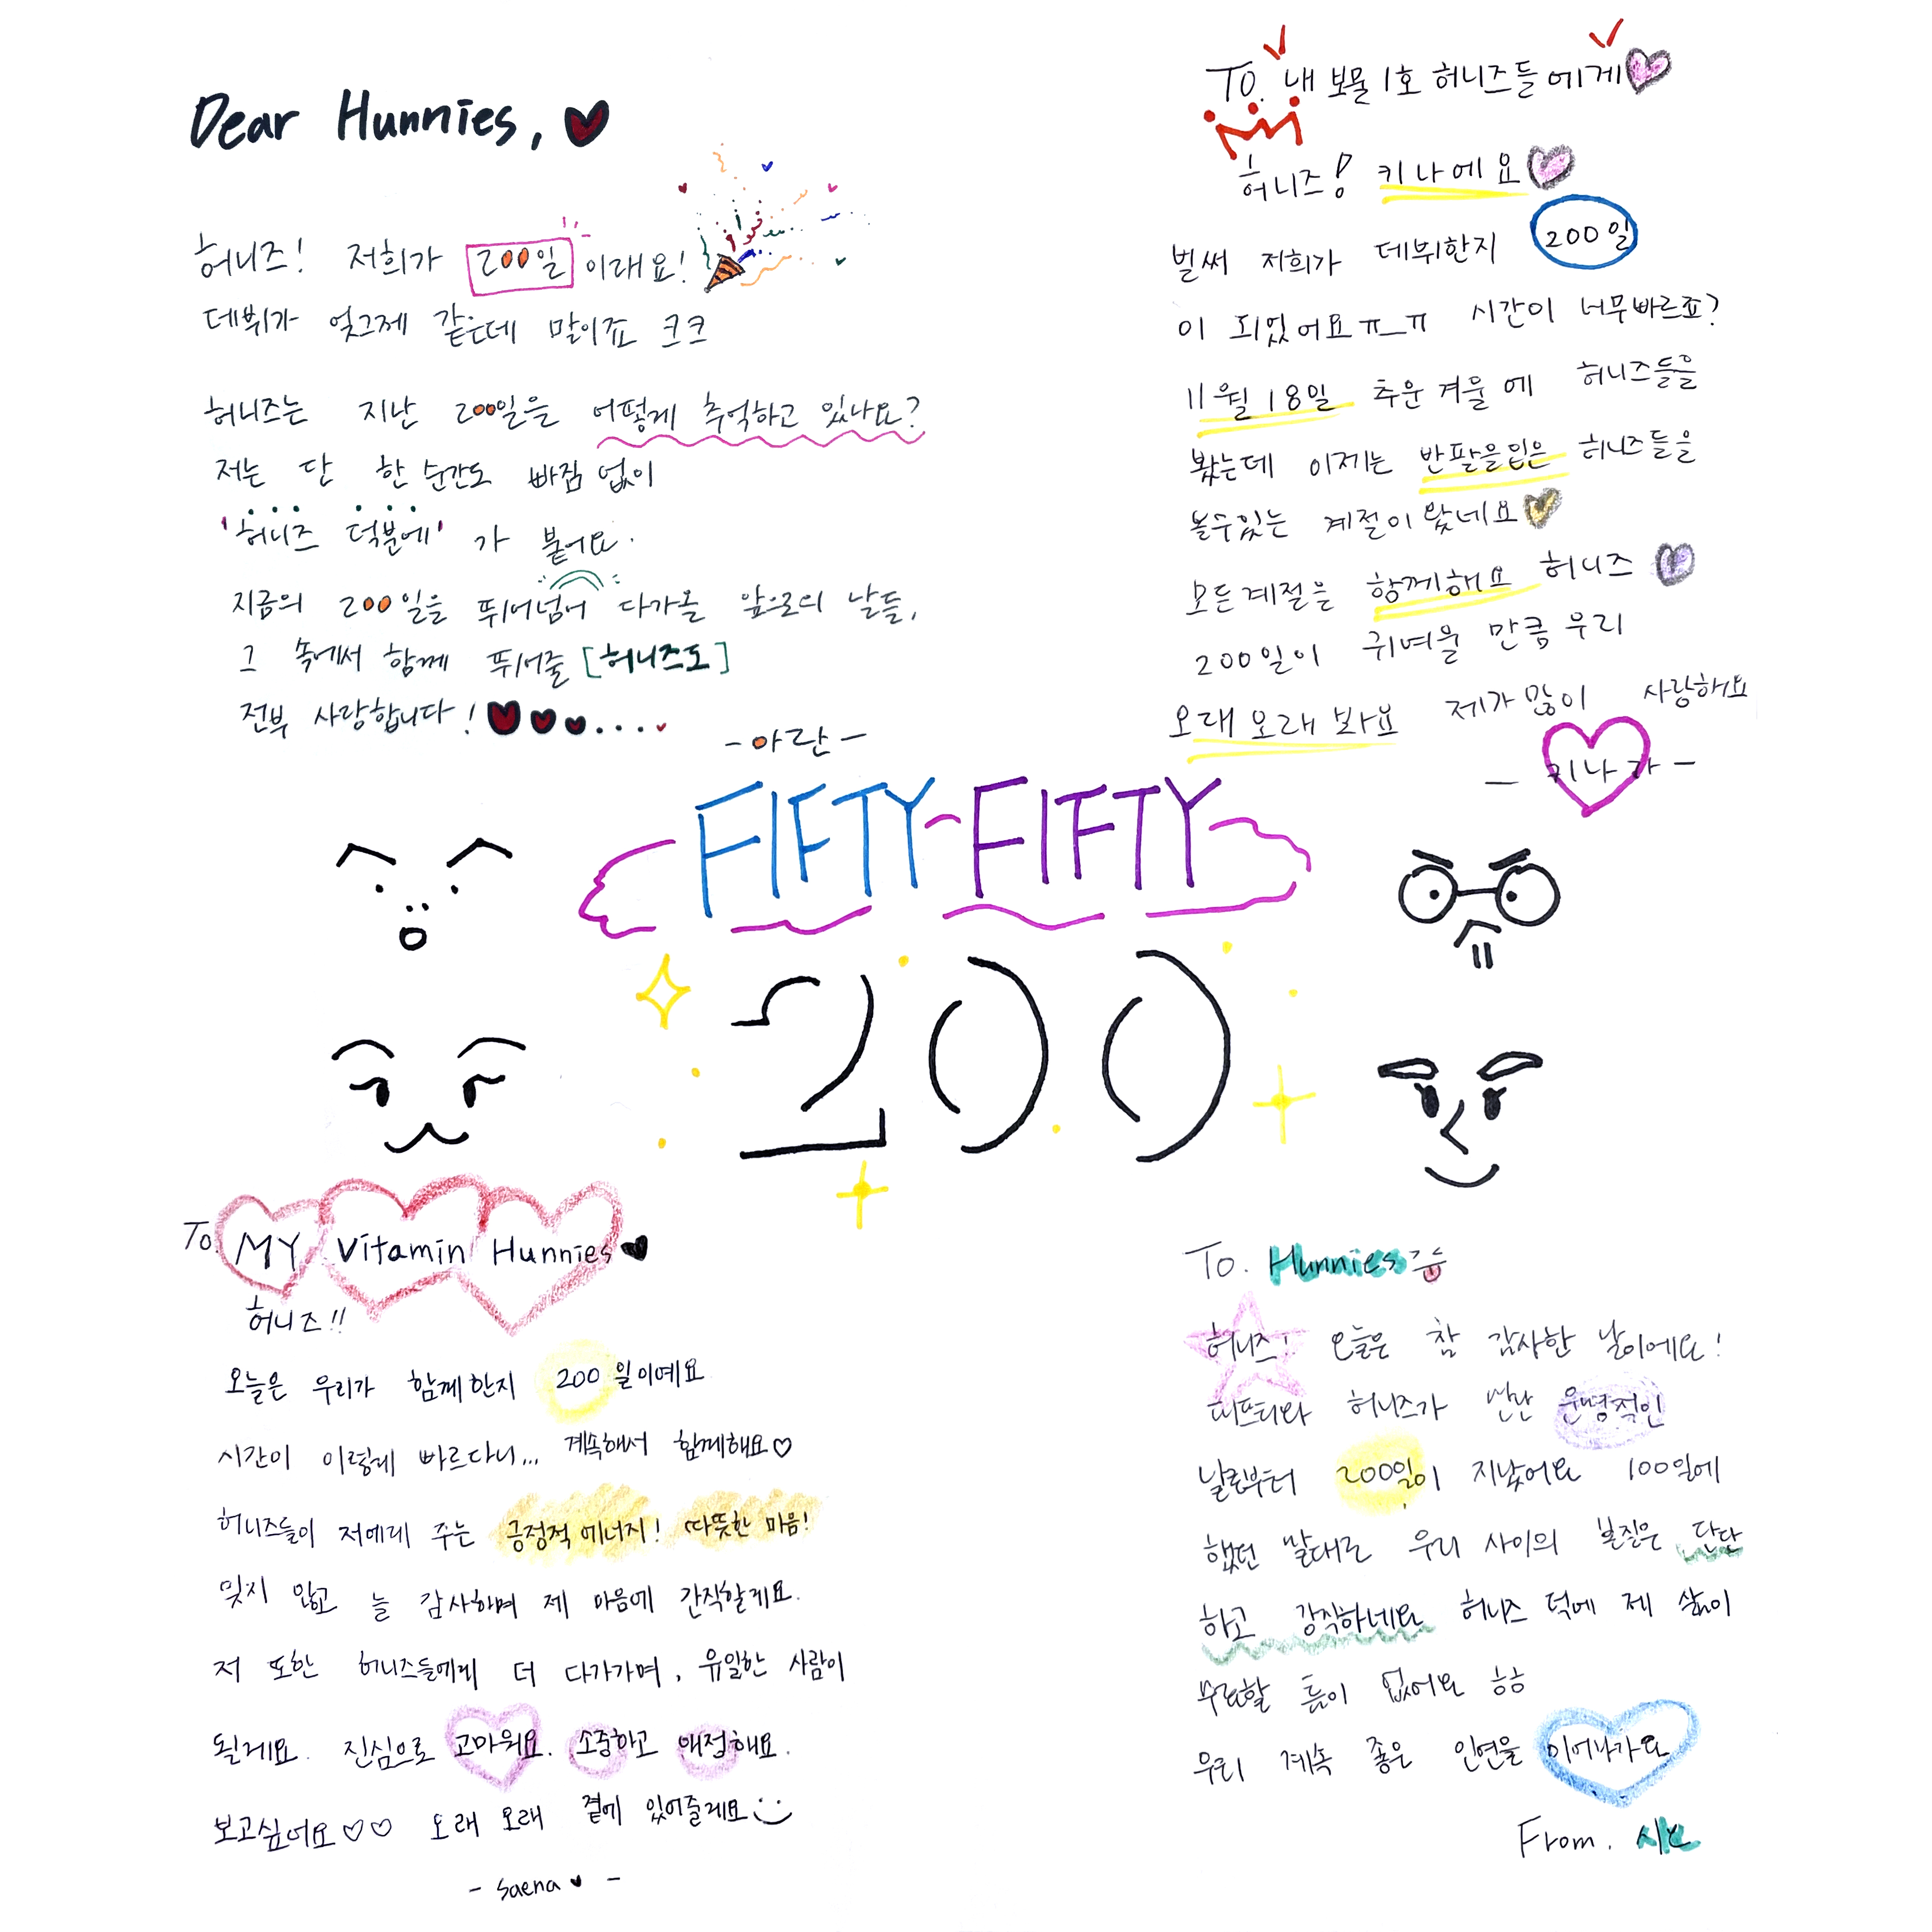 Dear Hunnies,
허니즈! 저희가 200일 이래요!
데뷔가 엊그제 같은데 말이죠 크크
허니즈는 지난 200일을 어떻게 추억하고 있나요?
저는 단 한 순간도 빠짐 없이
'허니즈 덕분에' 가 붙어요.
지금의 200일을 뛰어넘어 다가올 앞으로의 날들,
그 속에서 함께 뛰어줄 [허니즈도]
전부 사랑합니다!
-아란-
To. 내 보물 1호 허니즈들에게
허니즈! 키나에요
벌써 저희가 데뷔한지 200일
이 되었어요ㅠ_ㅠ 시간이 너무빠르죠?
11월 18일 추운 겨울에 허니즈들을
봤는데 이제는 반팔을입은 허니즈들을
볼수있는 계절이 왔네요
모든계절을 함께해요 허니즈
200일이 귀여울 만큼 우리
오래 오래 봐요 제가많이 사랑해요
- 키나가 -
FIFTY FIFTY
200
To. MY Vitamin Hunnies
허니즈!!
오늘은 우리가 함께한지 200일이예요
시간이 이렇게 빠르다니... 계속해서 함께해요♡
허니즈들이 저에게 주는 긍정적 에너지! 따뜻한 마음!
잊지 않고 늘 감사하며 제 마음에 간직할게요.
저 또한 허니즈들에게 더 다가가며, 유일한 사람이
될게요. 진심으로 고마워요. 소중하고 애정해요.
보고싶어요♡♡ 오래 오래 곁에 있어줄게요
- Saena -
To. Hunnies
허니즈! 오늘은 참 감사한 날이에요!
피프티와 허니즈가 만난 운명적인
날로부터 200일이 지났어요 100일에
했던 말대로 우리 사이의 본질은 단단
하고 강직하네요 허니즈 덕에 제 삶이
무료할 틈이 없어요 ㅎㅎ
우리 계속 좋은 인연을 이어나가요
From. 시오